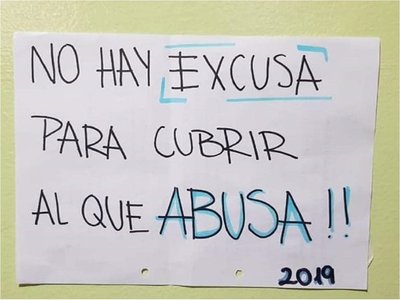 NO HAY EXCUSA
PARA CUBRIR
AL QUE ABUSA!!
2019